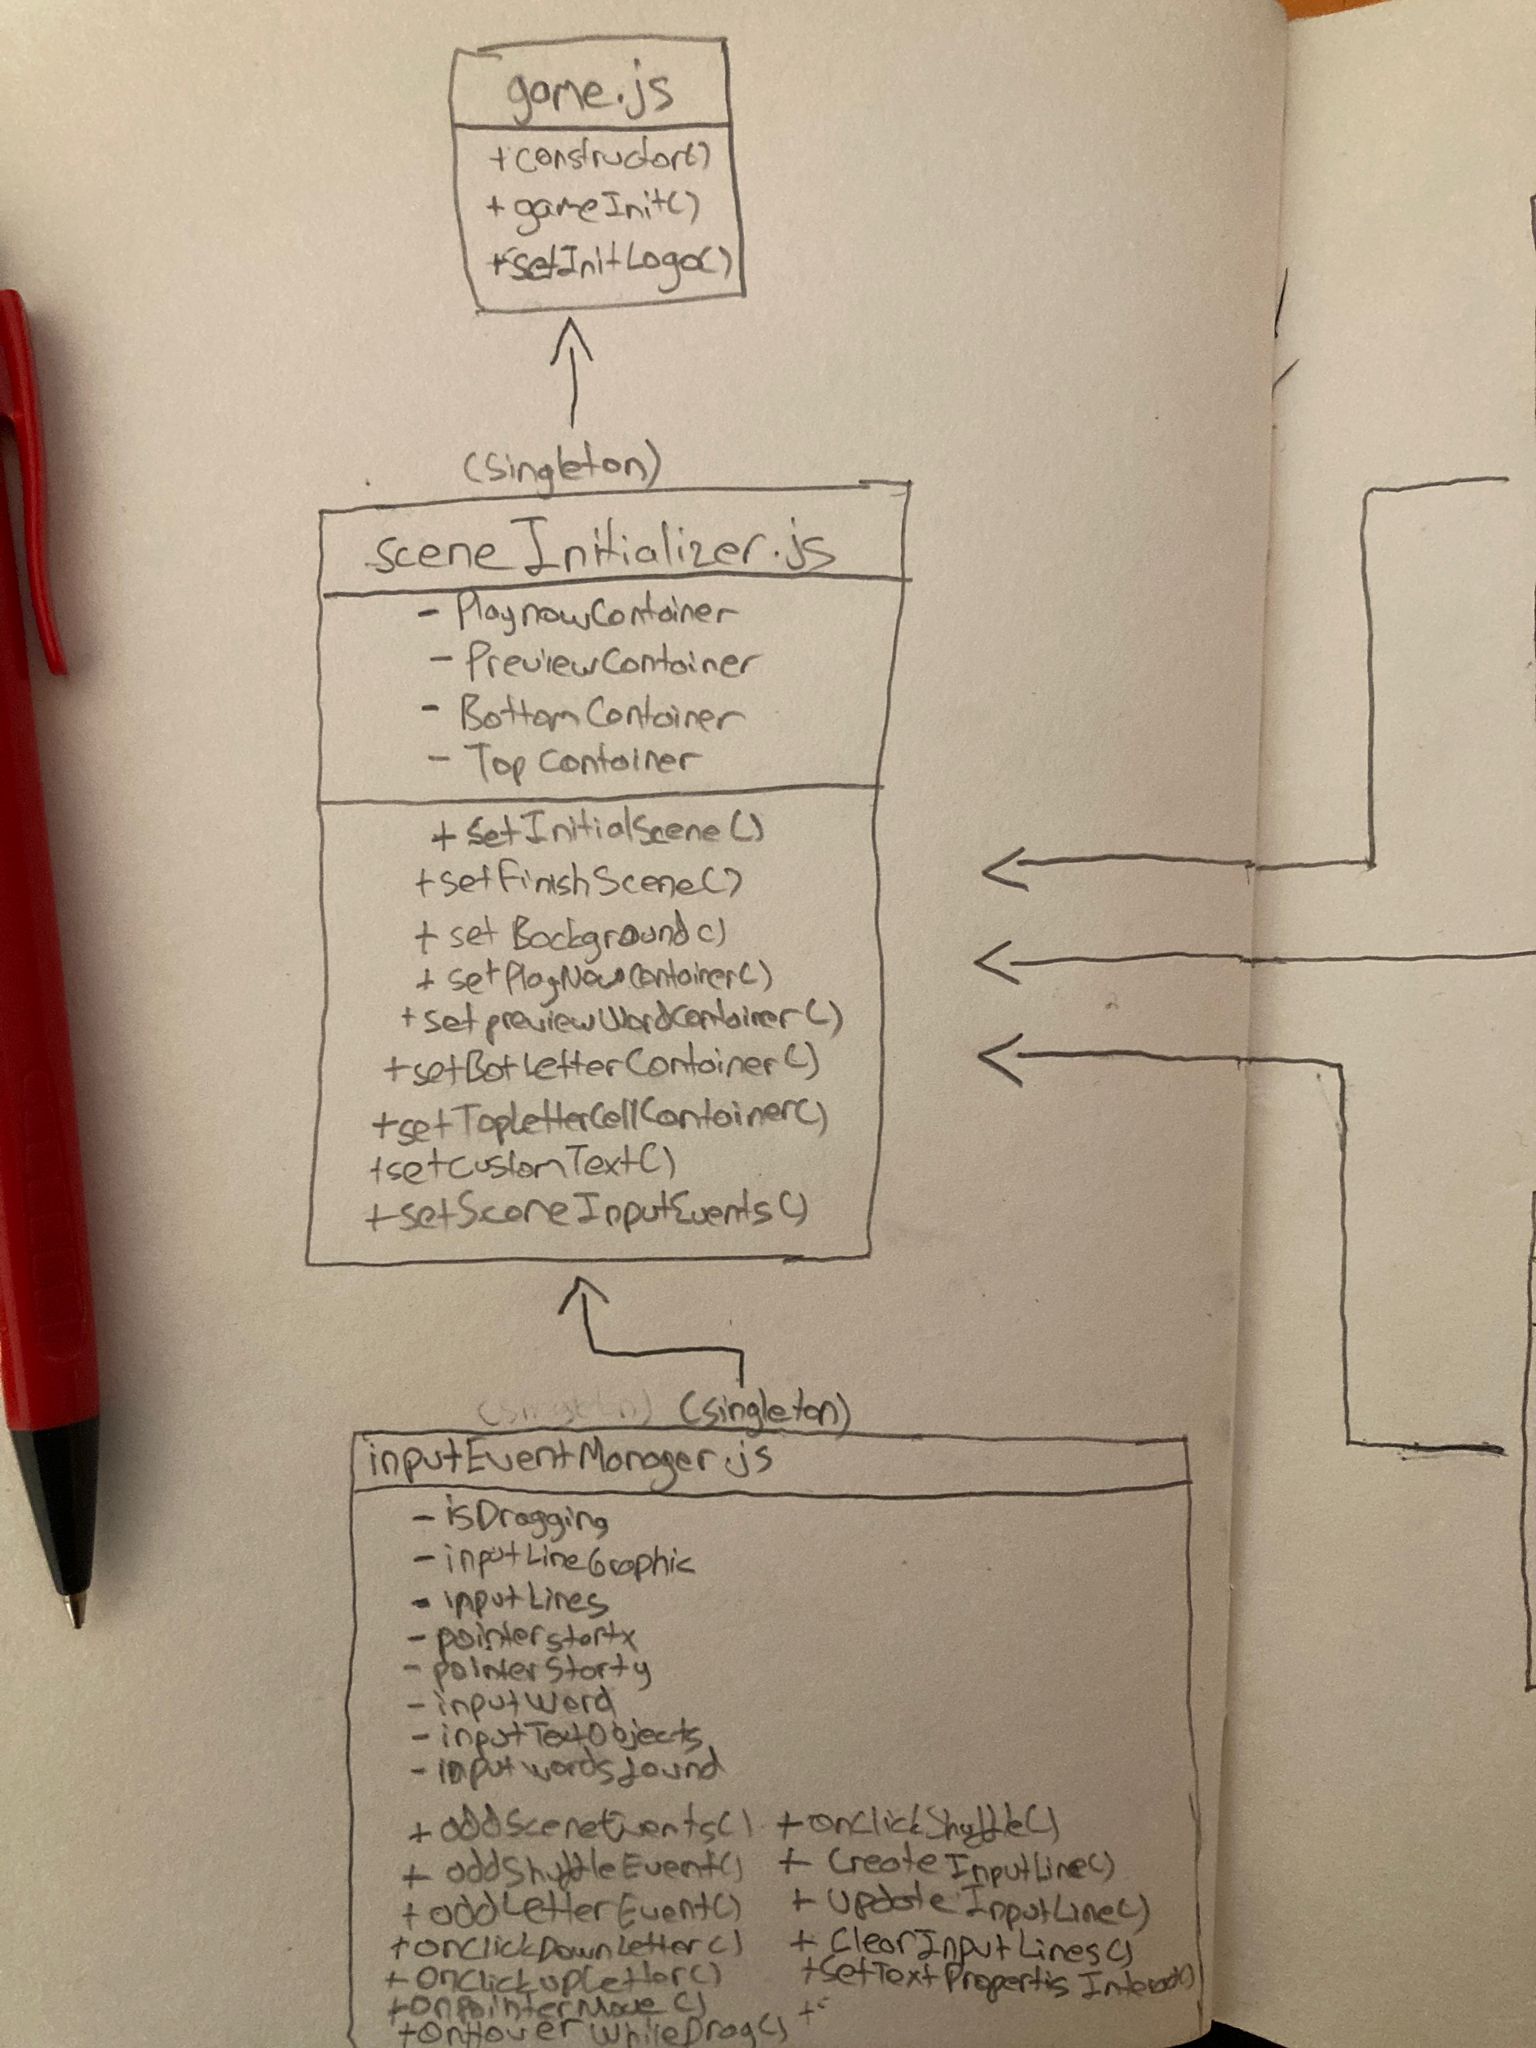 game.js
+constructor()
+ gameInit()
+setInitLogo()
(singleton)
sceneInitializer.js
- PlaynowContainer
- PreviewContainer
- BottomContainer
- Top Container
+ setInitialScene()
+setFinishScene()
+ set Background()
+ setPlayNowContainer()
+setpreviewWordContainer()
+setBotLetterContainer()
+setTopLetterCellContainer()
+setCustomText()
+setSceneInputEvents()
(singleton)
inputEventManager.js
- isDragging
- inputLineGraphic
- inputLines
- pointerstartx
- pointerStarty
- inputWord
- inputTextObjects
- inputwordsfound
+ addSceneEvents()
+ addShuffleEvent()
+ addLetterEvent()
+onClickDownLetter()
+ onClickupLetter()
+onpointerMove()
+onHoverWhileDrag()
+onClickShuffle()
+ CreateInputLine()
+ UpdateInputLine()
+ ClearInputLines()
+SetTextPropertis
+